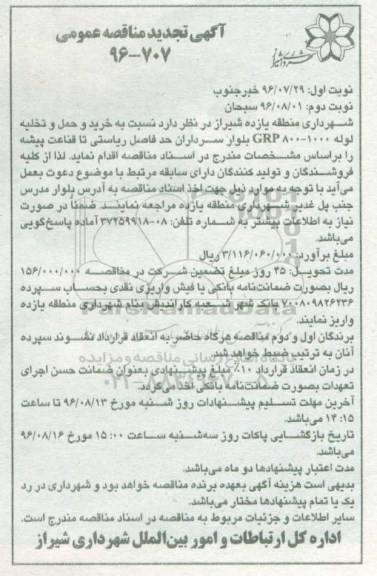 آگهی تجدید مناقصه عمومی
۹۶-۷۰۷
نوبت اول: ۹۶/۰۷/۲۹ خبرجنوب
نوبت دوم: ۹۶/۰۸/۰۱ سبحان
شهرداری منطقه یازده شیراز در نظر دارد نسبت به خرید و حمل و تخلیه
لوله GRP ۸۰۰-۱۰۰۰ بلوار سرداران حد فاصل ریاستی تا قناعت پیشه
را براساس مشخصات مندرج در اسناد مناقصه اقدام نماید. لذا از کلیه
فروشندگان و تولید کنندگان دارای سابقه مرتبط با موضوع دعوت بعمل
می‌آید با توجه به موارد ذیل جهت اخذ اسناد مناقصه به آدرس بلوار مدرس
جنب پل غدیر شهرداری منطقه یازده مراجعه نمایند. ضمنا در صورت
نیاز به اطلاعات بیشتر به شماره تلفن: ۰۸-۳۷۲۵۹۹۱۸ آماده پاسخ‌گویی
می‌باشد.
مبلغ برآورد: ۳/۱۱۶/۰۶۰/۰۰۰ ریال
مدت تحویل: ۴۵ روز مبلغ تضمین شرکت در مناقصه ۱۵۶/۰۰۰/۰۰۰
ریال بصورت ضمانت‌نامه بانکی یا فیش واریزی نقدی بحساب سپرده
۷۰۰۸۰۹۸۲۶۲۳۶ بانک شهر شعبه کاراندیش بنام شهرداری منطقه یازده
واریز نمایند.
برندگان اول و دوم مناقصه هرگاه حاضر به انعقاد قرارداد نشوند سپرده
آنان به ترتیب ضبط خواهد شد.
در زمان انعقاد قرارداد ۱۰٪ مبلغ پیشنهادی بعنوان ضمانت حسن اجرای
تعهدات بصورت ضمانت‌نامه بانکی اخذ می‌گردد.
آخرین مهلت تسلیم پیشنهادات روز شنبه مورخ ۹۶/۰۸/۱۳ تا ساعت
۱۴:۱۵ می‌باشد.
تاریخ بازگشایی پاکات روز سه‌شنبه ساعت ۱۵:۰۰ مورخ ۹۶/۰۸/۱۶
می‌باشد.
مدت اعتبار پیشنهادها دو ماه می‌باشد.
بدیهی است هزینه آگهی بعهده برنده مناقصه خواهد بود و شهرداری در رد
یک یا تمام پیشنهادها مختار می‌باشد.
سایر اطلاعات و جزئیات مربوط به مناقصه در اسناد مناقصه مندرج است.
اداره کل ارتباطات و امور بین‌الملل شهرداری شیراز